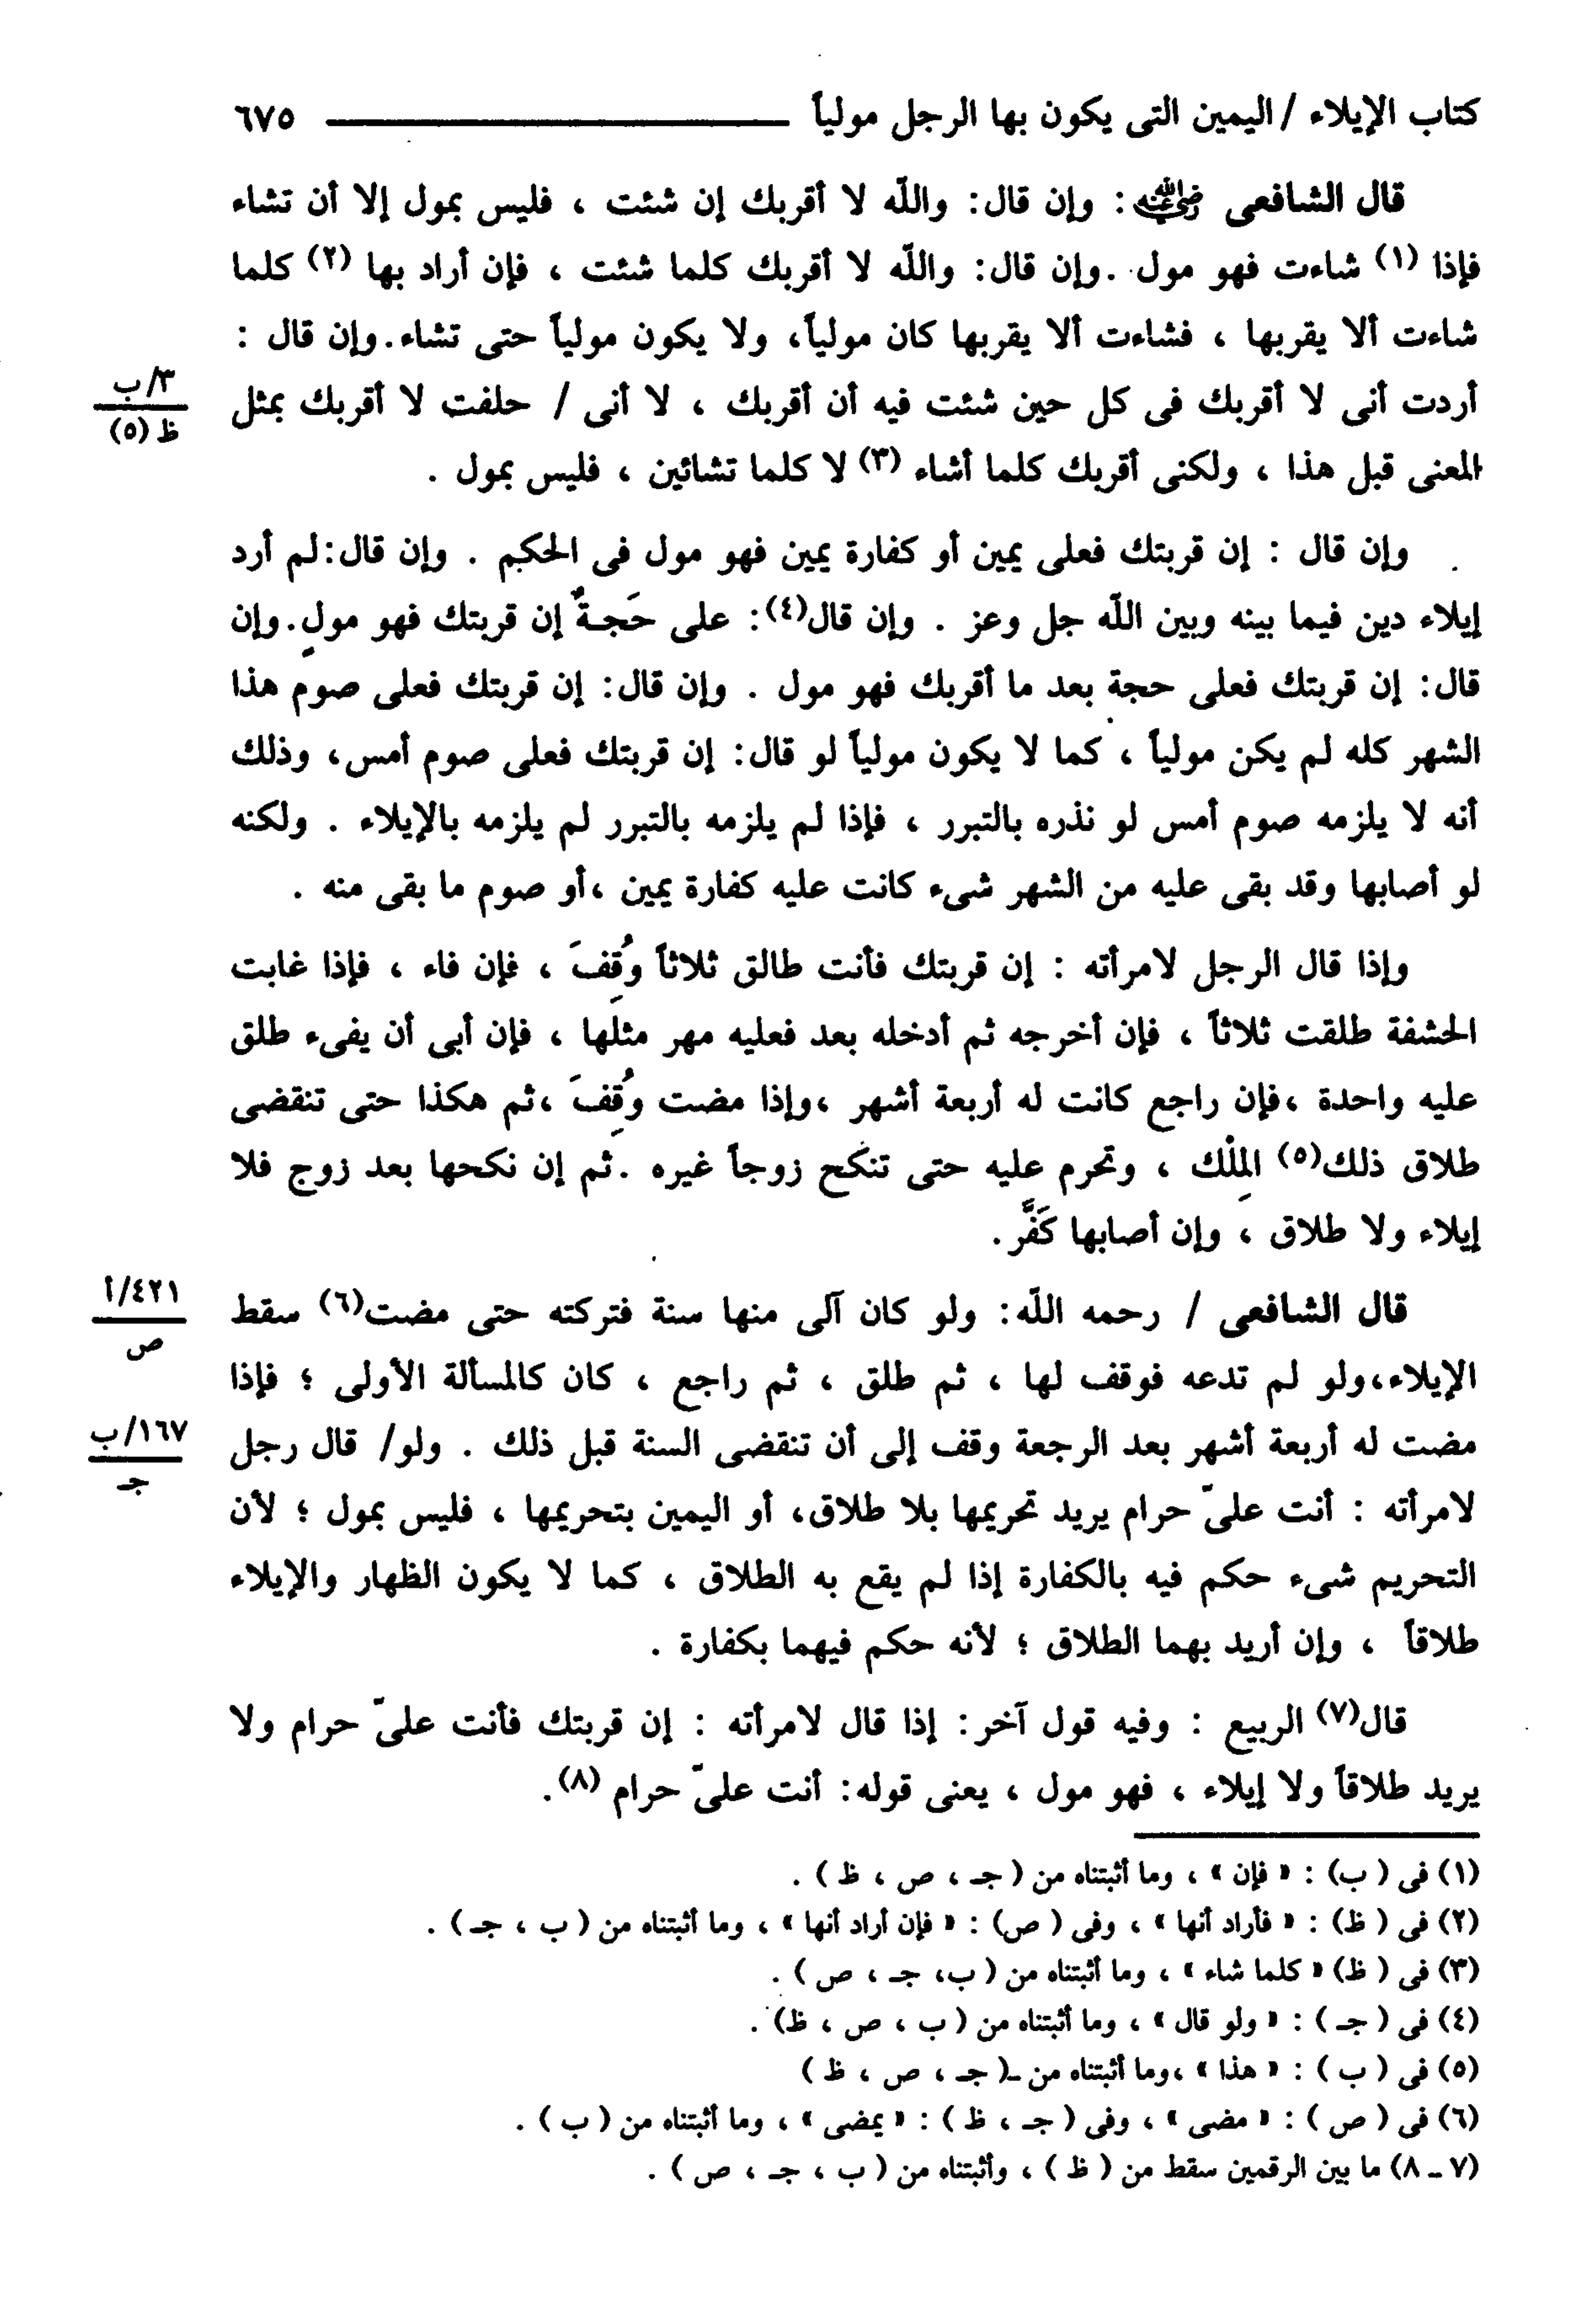 كتاب الإيلاء / اليمين التى يكون بها الرجل مولياً ــــــــــ ٦٧٥
قال الشافعى رضي الله عنه : وإن قال: والله لا أقربك إن شئت ، فليس بمول إلا أن تشاء
فإذا (١) شاءت فهو مول .وإن قال: والله لا أقربك كلما شئت ، فإن أراد بها (٢) كلما
شاءت ألا يقربها ، فشاءت ألا يقربها كان مولياً، ولا يكون مولياً حتى تشاء.وإن قال :
أردت أنى لا أقربك فى كل حين شئت فيه أن أقربك ، لا أنى / حلفت لا أقربك بمثل
٣/ب
ظ (٥)
المعنى قبل هذا ، ولكنى أقربك كلما أشاء (٣) لا كلما تشائين ، فليس بمول .
وإن قال : إن قربتك فعلى يمين أو كفارة يمين فهو مول فى الحكم . وإن قال:لم أرد
إيلاء دين فيما بينه وبين الله جل وعز . وإن قال(٤): على حَجـةٌ إن قربتك فهو مولٍ.وإن
قال: إن قربتك فعلى حجة بعد ما أقربك فهو مول . وإن قال: إن قربتك فعلى صوم هذا
الشهر كله لم يكن مولياً ، كما لا يكون مولياً لو قال: إن قربتك فعلى صوم أمس، وذلك
أنه لا يلزمه صوم أمس لو نذره بالتبرر ، فإذا لم يلزمه بالتبرر لم يلزمه بالإيلاء . ولكنه
لو أصابها وقد بقى عليه من الشهر شىء كانت عليه كفارة يمين ،أو صوم ما بقى منه .
وإذا قال الرجل لامرأته : إن قربتك فأنت طالق ثلاثاً وُقِفَ ، فإن فاء ، فإذا غابت
الحشفة طلقت ثلاثاً ، فإن أخرجه ثم أدخله بعد فعليه مهر مثلها ، فإن أبى أن يفىء طلق
عليه واحدة ،فإن راجع كانت له أربعة أشهر ،وإذا مضت وُقِفَ ،ثم هكذا حتى تنقضى
طلاق ذلك(٥) المِلْك ، وتحرم عليه حتى تنكح زوجاً غيره .ثم إن نكحها بعد زوج فلا
إيلاء ولا طلاق ، وإن أصابها كَفَّر.
قال الشافعى / رحمه الله: ولو كان آلى منها سنة فتركته حتى مضت(٦) سقط
٤٢١/أ
ص
الإيلاء،ولو لم تدعه فوقف لها ، ثم طلق ، ثم راجع ، كان كالمسألة الأولى ؛ فإذا
مضت له أربعة أشهر بعد الرجعة وقف إلى أن تنقضى السنة قبل ذلك . ولو/ قال رجل
١٦٧/ب
جـ
لامرأته : أنت علىّ حرام يريد تحريمها بلا طلاق، أو اليمين بتحريمها ، فليس بمول ؛ لأن
التحريم شىء حكم فيه بالكفارة إذا لم يقع به الطلاق ، كما لا يكون الظهار والإيلاء
طلاقاً ، وإن أريد بهما الطلاق ؛ لأنه حكم فيهما بكفارة .
قال(٧) الربيع : وفيه قول آخر: إذا قال لامرأته : إن قربتك فأنت علىّ حرام ولا
يريد طلاقاً ولا إيلاء ، فهو مول ، يعنى قوله: أنت علىّ حرام (٨).
(١) فى ( ب) : « فإن » ، وما أثبتناه من ( جـ ، ص ، ظ ) .
(٢) فى ( ظ) : « فأراد أنها » ، وفى ( ص) : « فإن أراد أنها » ، وما أثبتناه من ( ب ، جـ ) .
(٣) فى ( ظ) « كلما شاء » ، وما أثبتناه من ( ب، جـ ، ص ) .
(٤) فى ( جـ ) : « ولو قال » ، وما أثبتناه من ( ب ، ص ، ظ) .
(٥) فى ( ب ) : « هذا » ،وما أثبتناه من ـ( جـ ، ص ، ظ )
(٦) فى ( ص ) : « مضى » ، وفى ( جـ ، ظ ) : « يمضى » ، وما أثبتناه من ( ب ) .
(٧ ـ ٨) ما بين الرقمين سقط من ( ظ ) ، وأثبتناه من ( ب ، جـ ، ص ) .